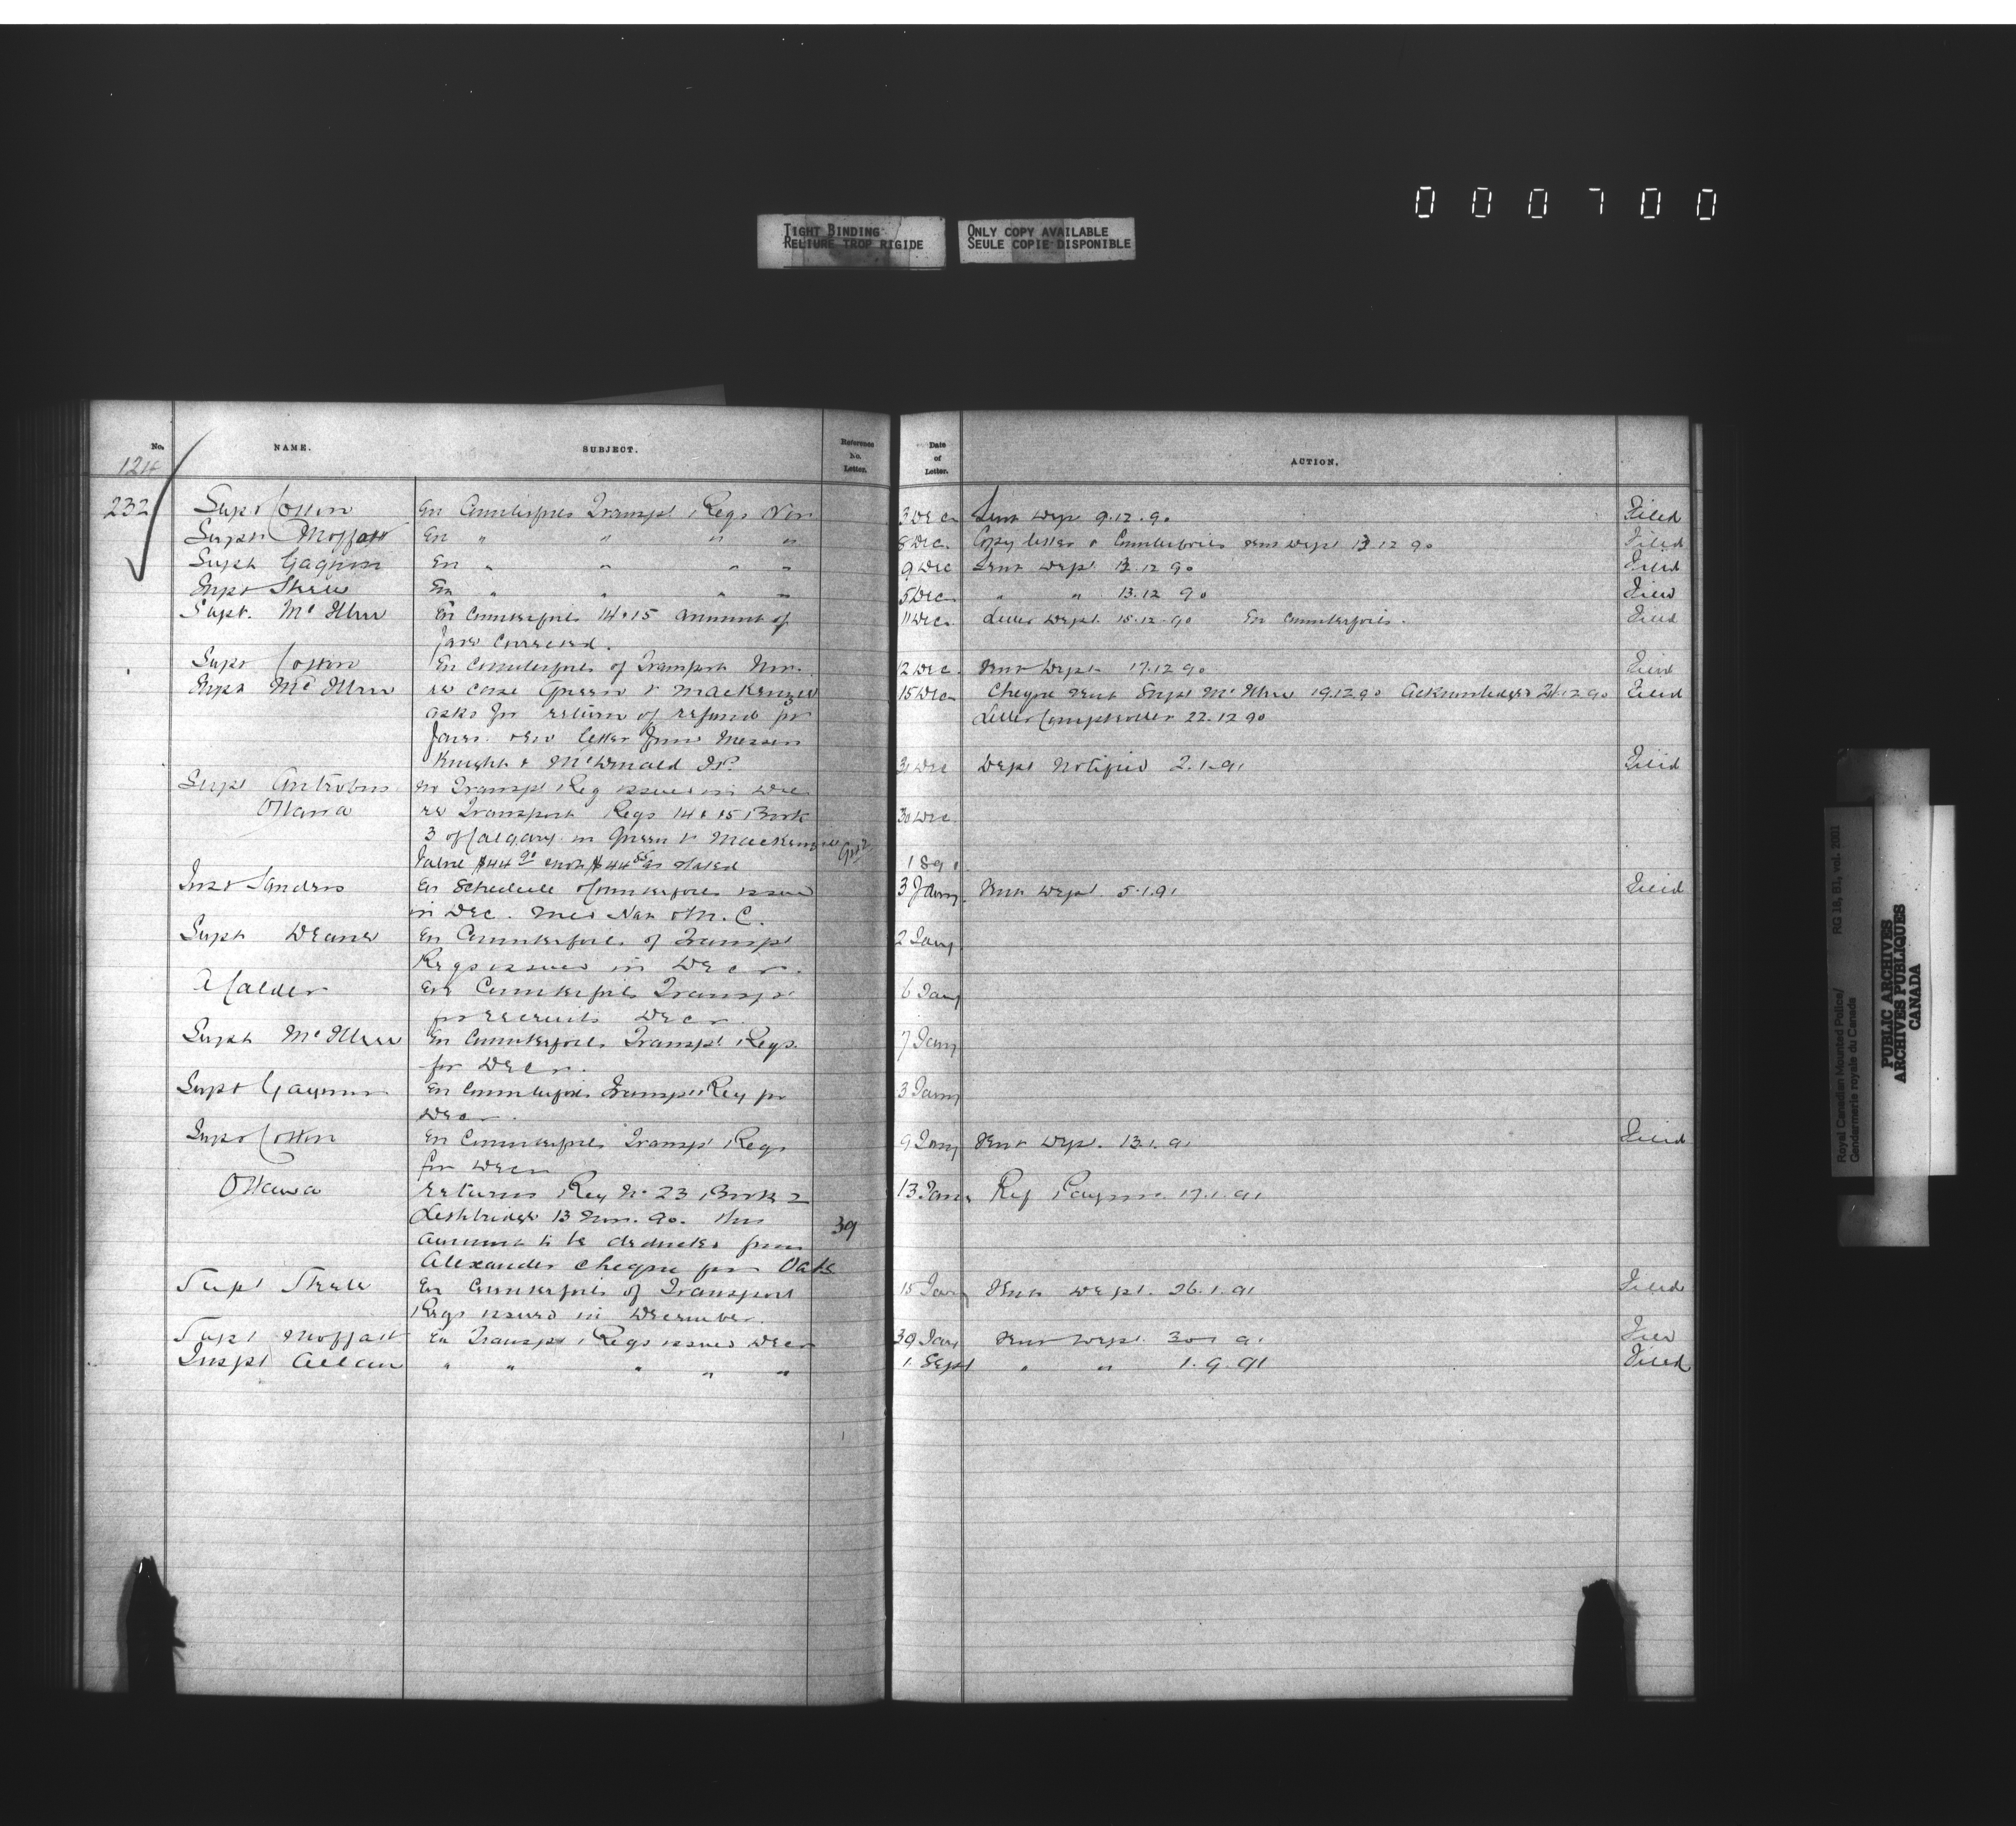 000700
TIGHT BINDING
RELIURE TROP RIGIDE
ONLY COPY AVAILABLE
SEULE COPIE DISPONIBLE
No. NAME. SUBJECT. Reference No. Letter. Date of Letter. ACTION.
124
232 Supt Cotton En Counterfoils Transpt Reqs Nov 3 Dec Sent Dept 9.12.90 Filed
Supt Moffatt En " " " " 8 Dec. Copy letter & Counterfoils sent Dept 13.12.90 Filed
Supt Gagnon En " " " " 9 Dec Sent Dept 12.90 Filed
Supt Steele En " " " " 5 Dec " " 13.12.90 Filed
Supt. McIllree En Counterfoils 14 & 15 amount of 11 Dec. Letter Dept. 15.12.90 En Counterfoils. Filed
fare corrected.
Supt Cotton En Counterfoils of Transport Nov. 12 Dec. Sent Dept 17.12.90 Filed
Supt McIllree re case Green v Mackenzie 15 Dec Cheque sent Supt McIllree 19.12.90 Acknowledged 12.90 Filed
asks for return of refund for Letter Comptroller 22.12.90
fares. letter from Messrs
Knight & McDonald J.P.
Dec Dept Notified 2.1.91 Filed
Supt Antrobus no Transpt Req issued in Dec
Ottawa re Transport Reqs 14 & 15 Book 30 Dec.
3 of Calgary in Green v Mackenzie
Value $44 90 $44 as stated 1891
Inst Sanders En Schedule Counterfoils issued 3 Jany. Sent Dept. 5.1.91 Filed
in Dec. Med Hat & M.C.
Supt Deane En Counterfoils of Transpt 2 Jany
Reqs issued in Decr.
A Calder En Counterfoils Transpt 6 Jany
for recruits Decr
Supt McIllree En Counterfoils Transpt Reqs. 7 Jany
for Decr.
Supt Gagnon En Counterfoils Transpt Req for 3 Jany
Decr.
Supt Cotton En Counterfoils Transpt Reqs 9 Jany Sent Dept. 13.1.91 Filed
for Decr
Ottawa returns Req No 23 Book 2 13 Jany Ref Paymr. 17.1.91
Lethbridge 13 Nov. 90. this 39
amount to be deducted from
Alexander cheque for Oats
Supt Steele En Counterfoils of Transport 15 Jany Sent Dept. 26.1.91 Filed
Reqs issued in December.
Supt Moffatt En Transpt Reqs issued Decr Jany Sent Dept. 91 Filed
Inspt Allan " " " " " 1 Sept " " 1.9.91 Filed
Royal Canadian Mounted Police/
Gendarmerie royale du Canada
RG 18, B1, vol. 2001
PUBLIC ARCHIVES
ARCHIVES PUBLIQUES
CANADA